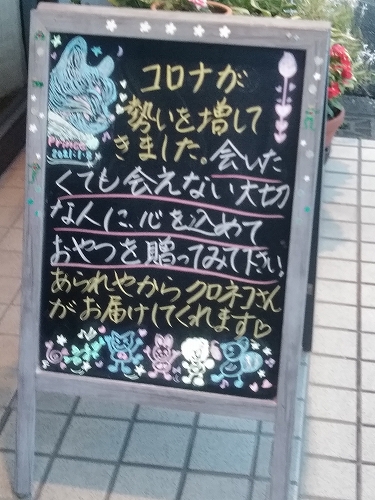 コロナが
勢いを増して
きました。会いた
くても会えない大切
な人に、心を込めて
おやつを贈ってみて下さい!
あられやから クロネコさん
がお届けしてくれます♡
Prince